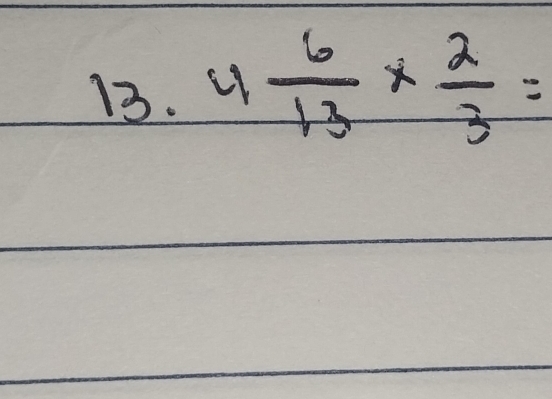 13. 4 6/13 × 2/3 =